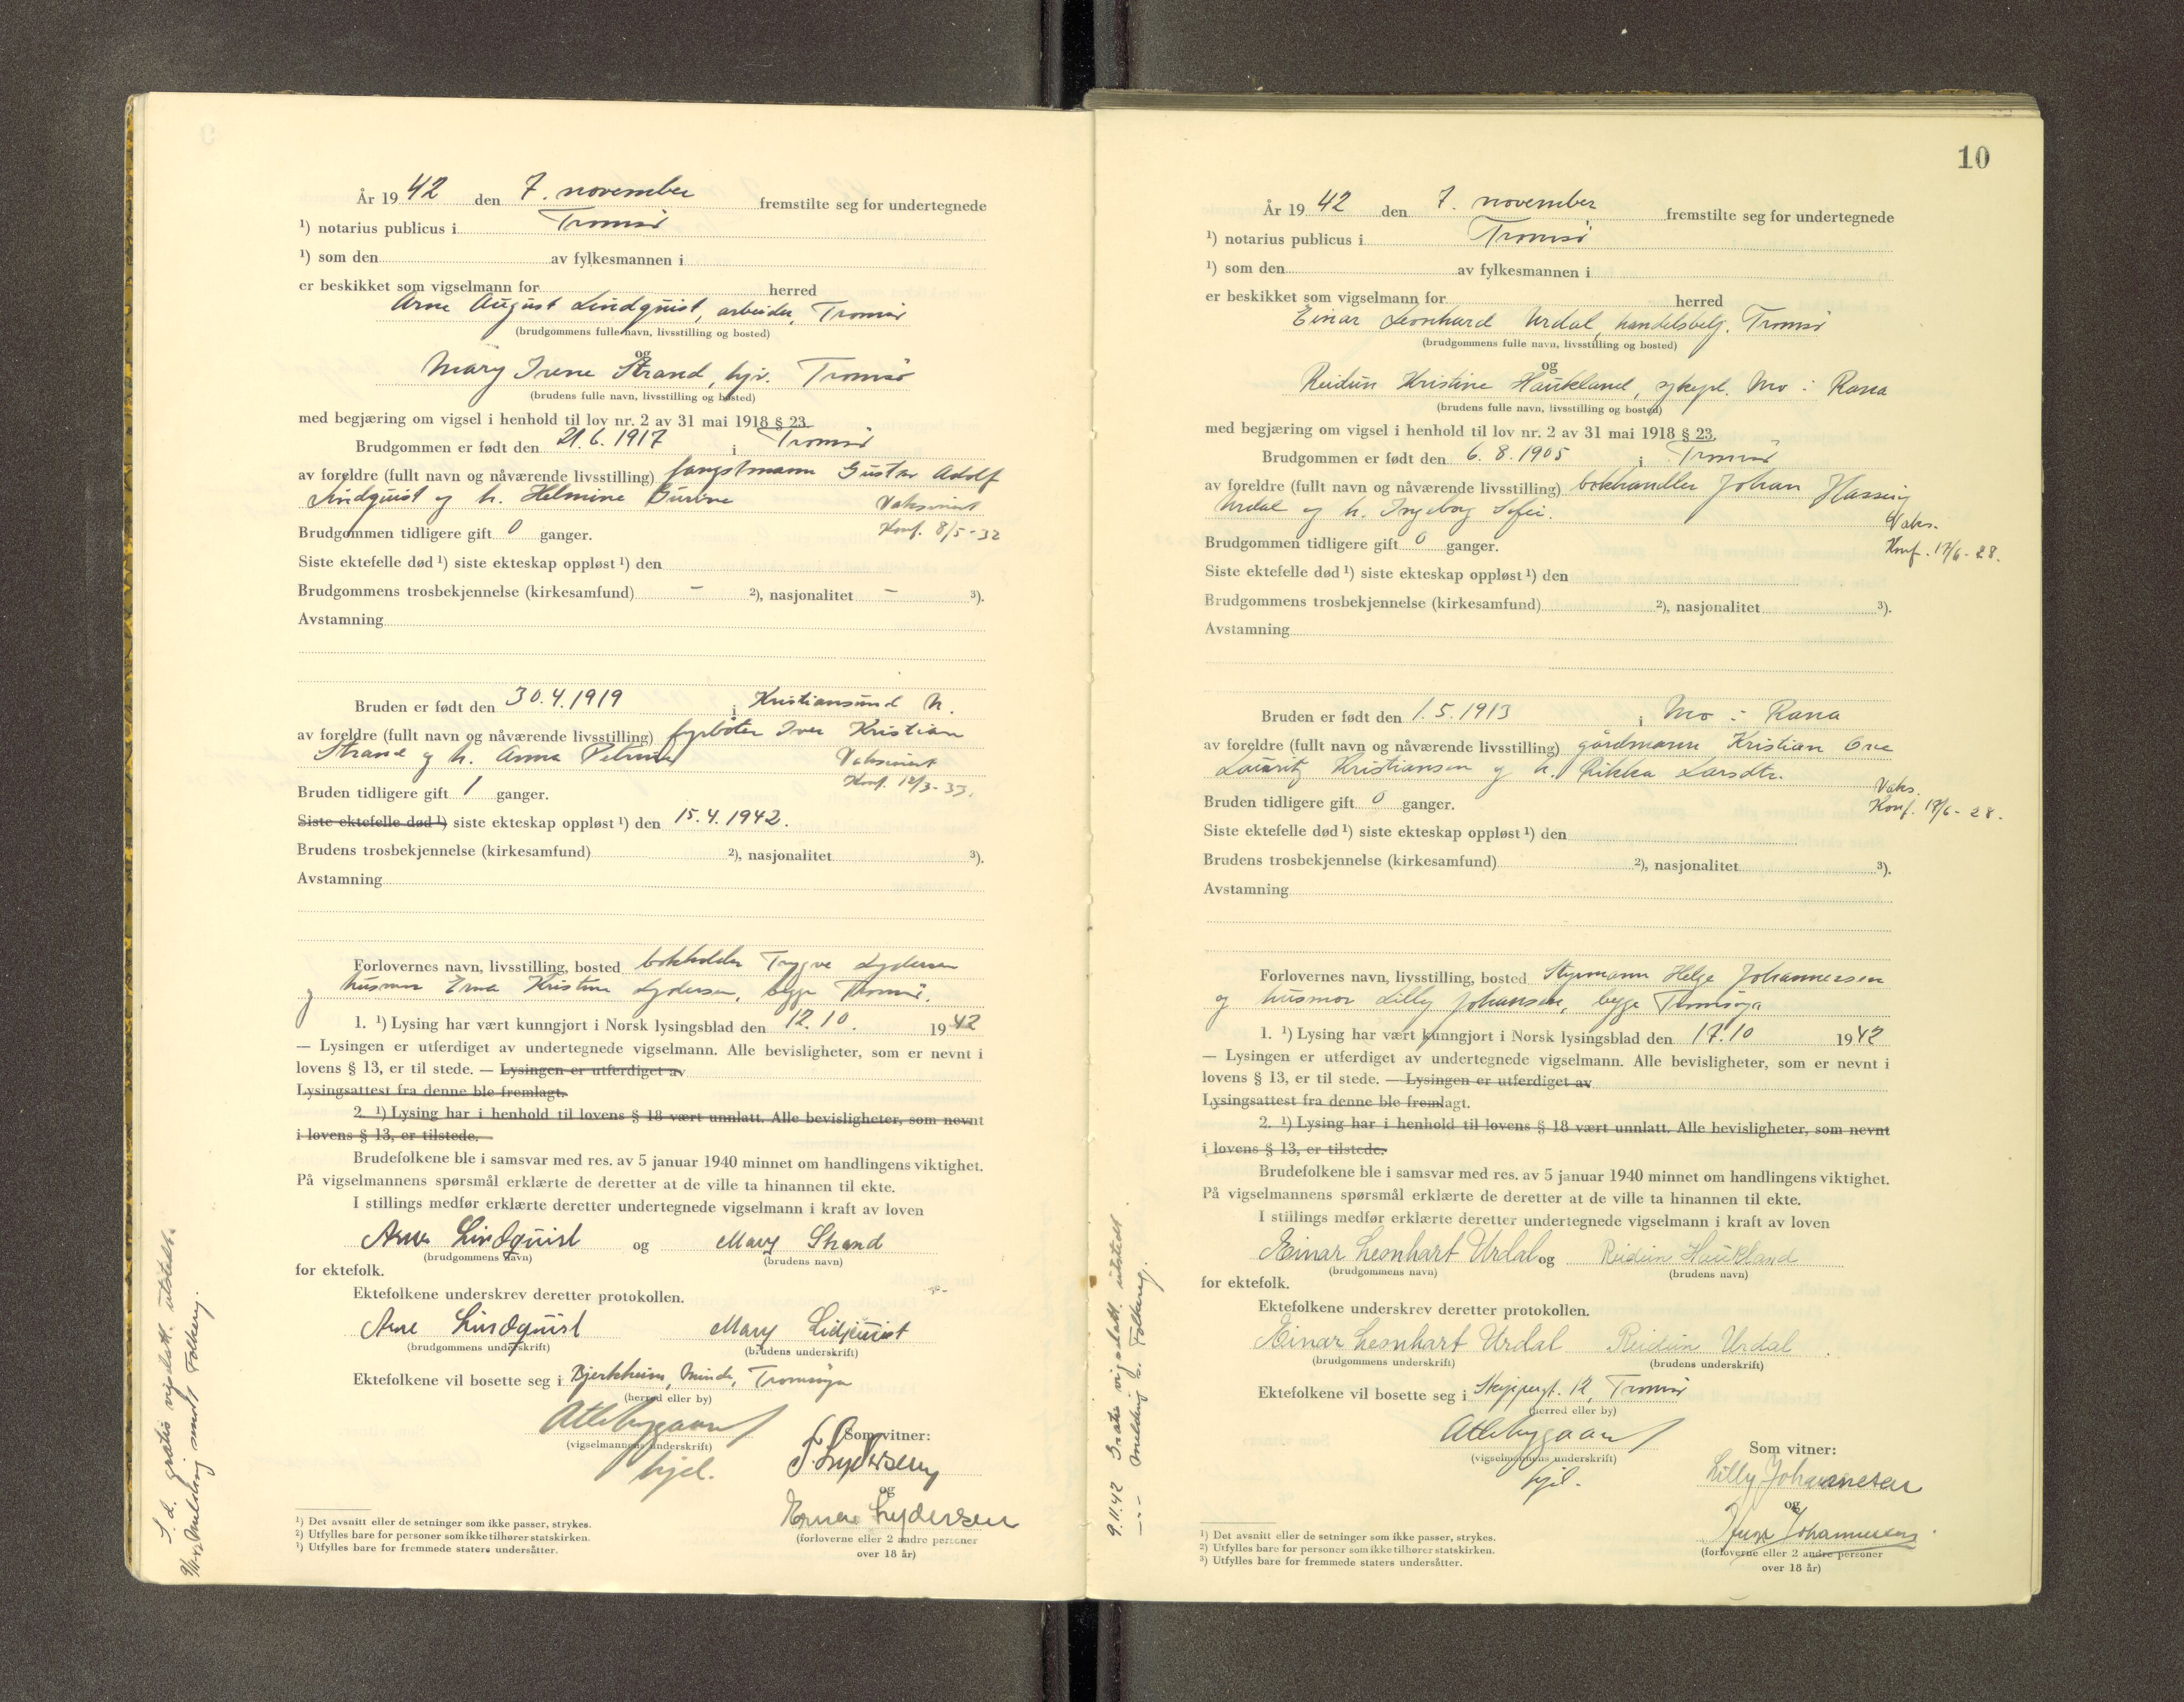 År 1942 den 7. november fremstilte seg for undertegnede
¹) notarius publicus i Tromsø
¹) som den av fylkesmannen i
er beskikket som vigselmann for herred
Arne August Lindquist, arbeider, Tromsø
(brudgommens fulle navn, livsstilling og bosted)
og
Mary Irene Strand, hjv. Tromsø
(brudens fulle navn, livsstilling og bosted)
med begjæring om vigsel i henhold til lov nr. 2 av 31 mai 1918 § 23.
Brudgommen er født den 21.6.1917 i Tromsø
av foreldre (fullt navn og nåværende livsstilling) fangstmann Gustav Adolf
Lindquist og h. Helmine Gurine
Vaksinert
Konf. 8/5-32
Brudgommen tidligere gift 0 ganger.
Siste ektefelle død ¹) siste ekteskap oppløst ¹) den
Brudgommens trosbekjennelse (kirkesamfund) - ²), nasjonalitet - ³).
Avstamning
Bruden er født den 30.4.1919 i Kristiansund N.
av foreldre (fullt navn og nåværende livsstilling) fyrbøter Iver Kristian
Strand og h. Anna Petrine
Vaksinert
Konf. 12/3-33.
Bruden tidligere gift 1 ganger.
Siste ektefelle død ¹) siste ekteskap oppløst ¹) den 15.4.1942.
Brudens trosbekjennelse (kirkesamfund) ²), nasjonalitet ³).
Avstamning
Forlovernes navn, livsstilling, bosted bokholder Trygve Lydersen
og husmor Erna Kristine Lydersen, begge Tromsø.
1. ¹) Lysing har vært kunngjort i Norsk lysingsblad den 12.10. 1942
— Lysingen er utferdiget av undertegnede vigselmann. Alle bevisligheter, som er nevnt i
lovens § 13, er til stede. — Lysingen er utferdiget av
Lysingsattest fra denne ble fremlagt.
2. ¹) Lysing har i henhold til lovens § 18 vært unnlatt. Alle bevisligheter, som nevnt
i lovens § 13, er tilstede. —
Brudefolkene ble i samsvar med res. av 5 januar 1940 minnet om handlingens viktighet.
På vigselmannens spørsmål erklærte de deretter at de ville ta hinannen til ekte.
I stillings medfør erklærte deretter undertegnede vigselmann i kraft av loven
Arne Lindquist og Mary Strand
(brudgommens navn) (brudens navn)
for ektefolk.
Ektefolkene underskrev deretter protokollen.
Arne Lindquist Mary Lidquist
(brudgommens underskrift) (brudens underskrift)
Ektefolkene vil bosette seg i Bjerkheim, Minde, Tromsøya
(herred eller by)
(vigselmannens underskrift)
hjel.
Som vitner:
T. Lydersen
og
Erna Lydersen
(forloverne eller 2 andre personer
over 18 år)
¹) Det avsnitt eller de setninger som ikke passer, strykes.
²) Utfylles bare for personer som ikke tilhører statskirken.
³) Utfylles bare for fremmede staters undersåtter.
S. d. gratis vigselsatt. utstedt.
Melding sendt Folkereg.
10
År 1942 den 7. november fremstilte seg for undertegnede
¹) notarius publicus i Tromsø
¹) som den av fylkesmannen i
er beskikket som vigselmann for herred
Einar Leonhard Urdal, handelsbetj. Tromsø
(brudgommens fulle navn, livsstilling og bosted)
og
Reidun Kristine Haukland, sykepl. Mo i Rana
(brudens fulle navn, livsstilling og bosted)
med begjæring om vigsel i henhold til lov nr. 2 av 31 mai 1918 § 23.
Brudgommen er født den 6.8.1905 i Tromsø
av foreldre (fullt navn og nåværende livsstilling) bokhandler Johan Hassing
Urdal og h. Ingeborg Sofie.
Vaks.
Konf. 17/6-28.
Brudgommen tidligere gift 0 ganger.
Siste ektefelle død ¹) siste ekteskap oppløst ¹) den
Brudgommens trosbekjennelse (kirkesamfund) ²), nasjonalitet ³).
Avstamning
Bruden er født den 1.5.1913 i Mo i Rana
av foreldre (fullt navn og nåværende livsstilling) gårdmann Kristian Ove
Lauritz Kristiansen og h. Rikka Larsdtr.
Vaks.
Konf. 17/6-28.
Bruden tidligere gift 0 ganger.
Siste ektefelle død ¹) siste ekteskap oppløst ¹) den
Brudens trosbekjennelse (kirkesamfund) ²), nasjonalitet ³).
Avstamning
Forlovernes navn, livsstilling, bosted Styrmann Helge Johannessen
og husmor Lilly Johansen, begge Tromsøya
1. ¹) Lysing har vært kunngjort i Norsk lysingsblad den 17.10 1942
— Lysingen er utferdiget av undertegnede vigselmann. Alle bevisligheter, som er nevnt i
lovens § 13, er til stede. — Lysingen er utferdiget av
Lysingsattest fra denne ble fremlagt.
2. ¹) Lysing har i henhold til lovens § 18 vært unnlatt. Alle bevisligheter, som nevnt
i lovens § 13, er tilstede.
Brudefolkene ble i samsvar med res. av 5 januar 1940 minnet om handlingens viktighet.
På vigselmannens spørsmål erklærte de deretter at de ville ta hinannen til ekte.
I stillings medfør erklærte deretter undertegnede vigselmann i kraft av loven
Einar Leonhart Urdal og Reidun Haukland
(brudgommens navn) (brudens navn)
for ektefolk.
Ektefolkene underskrev deretter protokollen.
Einar Leonhart Urdal Reidun Urdal
(brudgommens underskrift) (brudens underskrift)
Ektefolkene vil bosette seg i Skippergt. 12, Tromsø
(herred eller by)
(vigselmannens underskrift)
hjel.
Som vitner:
Lilly Johannesen
og
Johannessen
(forloverne eller 2 andre personer
over 18 år)
¹) Det avsnitt eller de setninger som ikke passer, strykes.
²) Utfylles bare for personer som ikke tilhører statskirken.
³) Utfylles bare for fremmede staters undersåtter.
9.11.42 Gratis vigselsatt. utstedt.
—"— melding t. Folkereg.